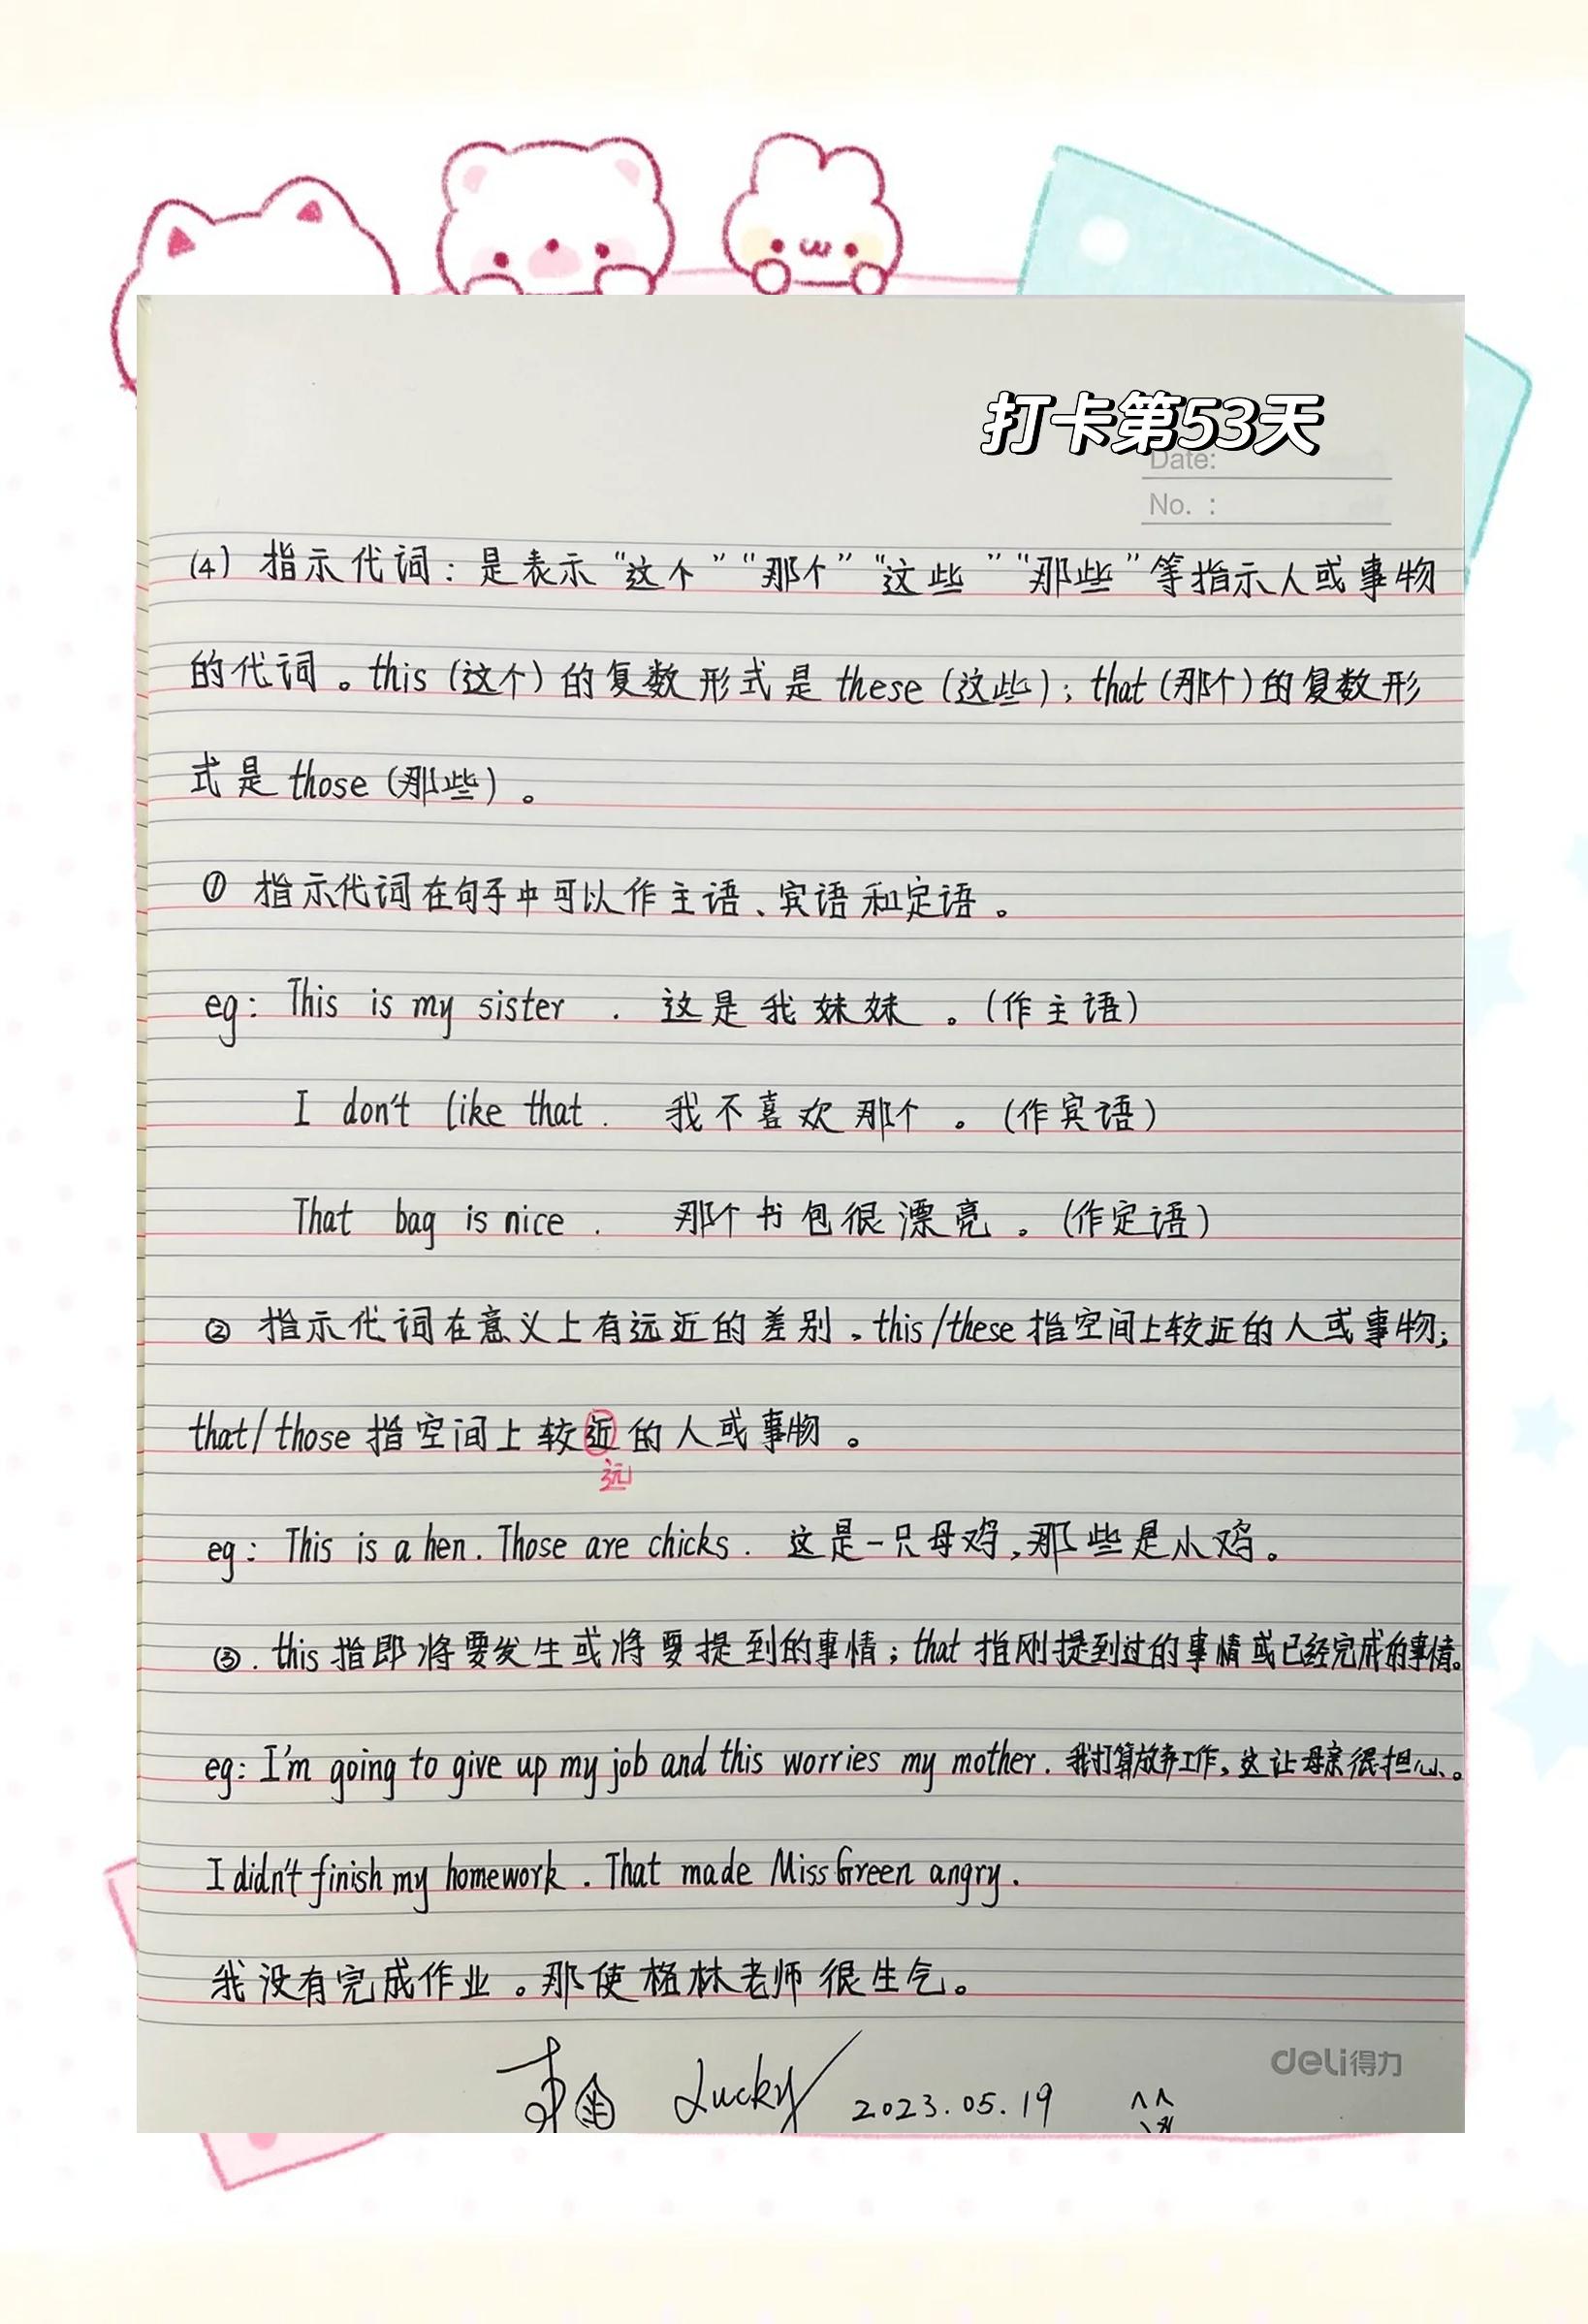 打卡第53天
Date:
No. :
(4) 指示代词：是表示“这个”“那个”“这些”“那些”等指示人或事物
的代词。this (这个) 的复数形式是 these (这些)；that (那个) 的复数形
式是 those (那些) 。
① 指示代词在句子中可以作主语、宾语和定语。
eg: This is my sister . 这是我妹妹。(作主语)
I don't like that . 我不喜欢那个。(作宾语)
That bag is nice . 那个书包很漂亮。(作定语)
② 指示代词在意义上有远近的差别。this/these 指空间上较近的人或事物；
that/those 指空间上较近的人或事物。
远
eg: This is a hen. Those are chicks. 这是一只母鸡，那些是小鸡。
③. this 指即将要发生或将要提到的事情；that 指刚提到过的事情或已经完成的事情。
eg: I'm going to give up my job and this worries my mother. 我打算放弃工作，这让母亲很担心。
I didn't finish my homework . That made Miss Green angry.
我没有完成作业。那使格林老师很生气。
deli得力
Lucky 2023.05.19